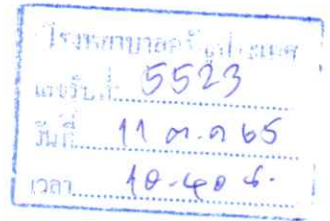 โรงพยาบาล
เลขรับที่ 5523
วันที่ 11 ต.ค 65
เวลา 10.40 น.